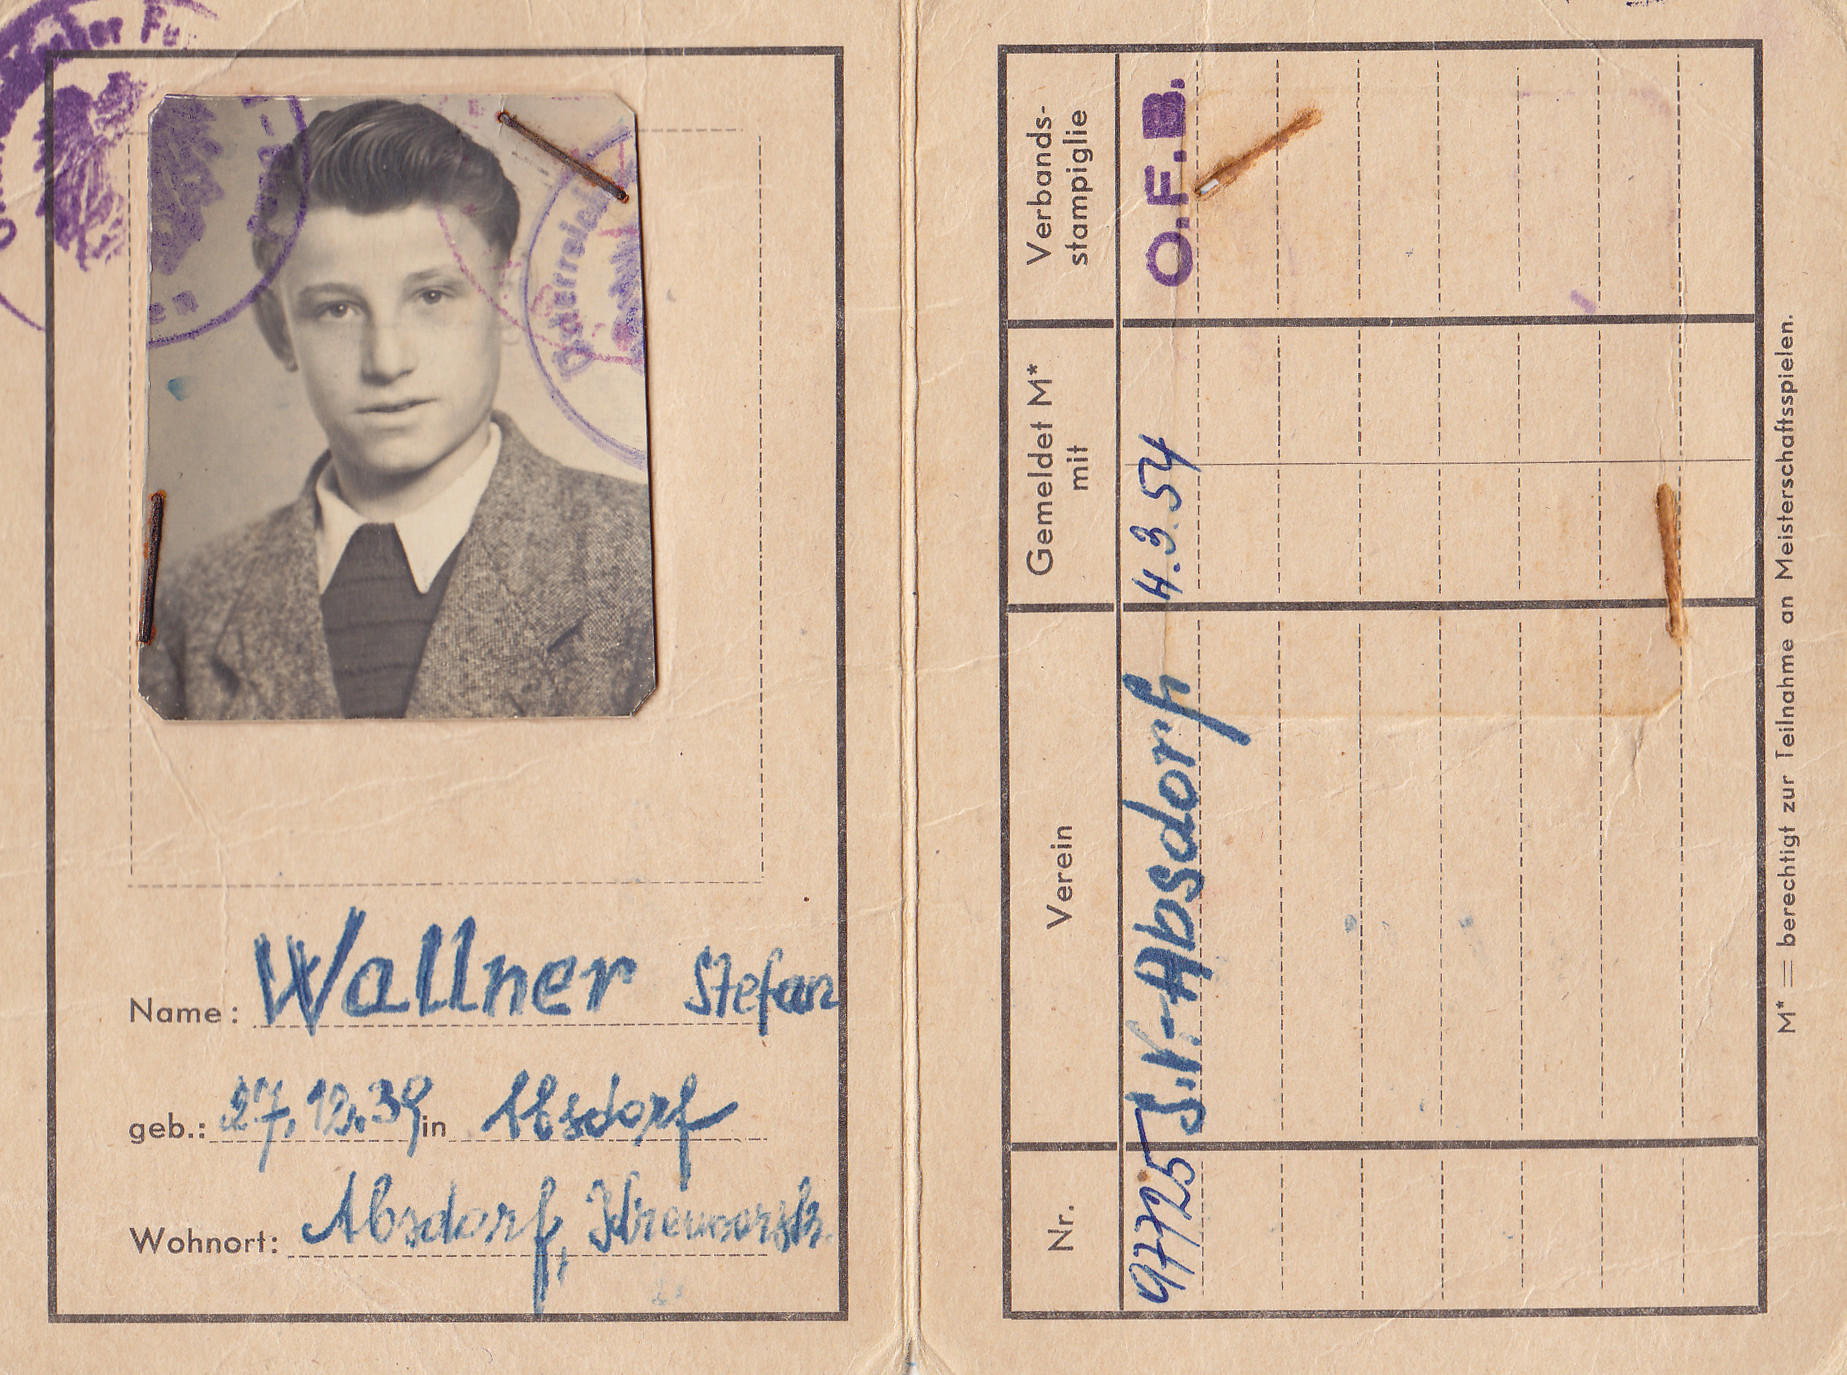 Name: Wallner Stefan
geb.: 27.12.39 in Absdorf
Wohnort: Absdorf,
Verbands-
stampiglie
Gemeldet M*
mit
Verein
Nr.
O.F.B.
4.3.54
S.V.-Absdorf
97725
M* = berechtigt zur Teilnahme an Meisterschaftsspielen.